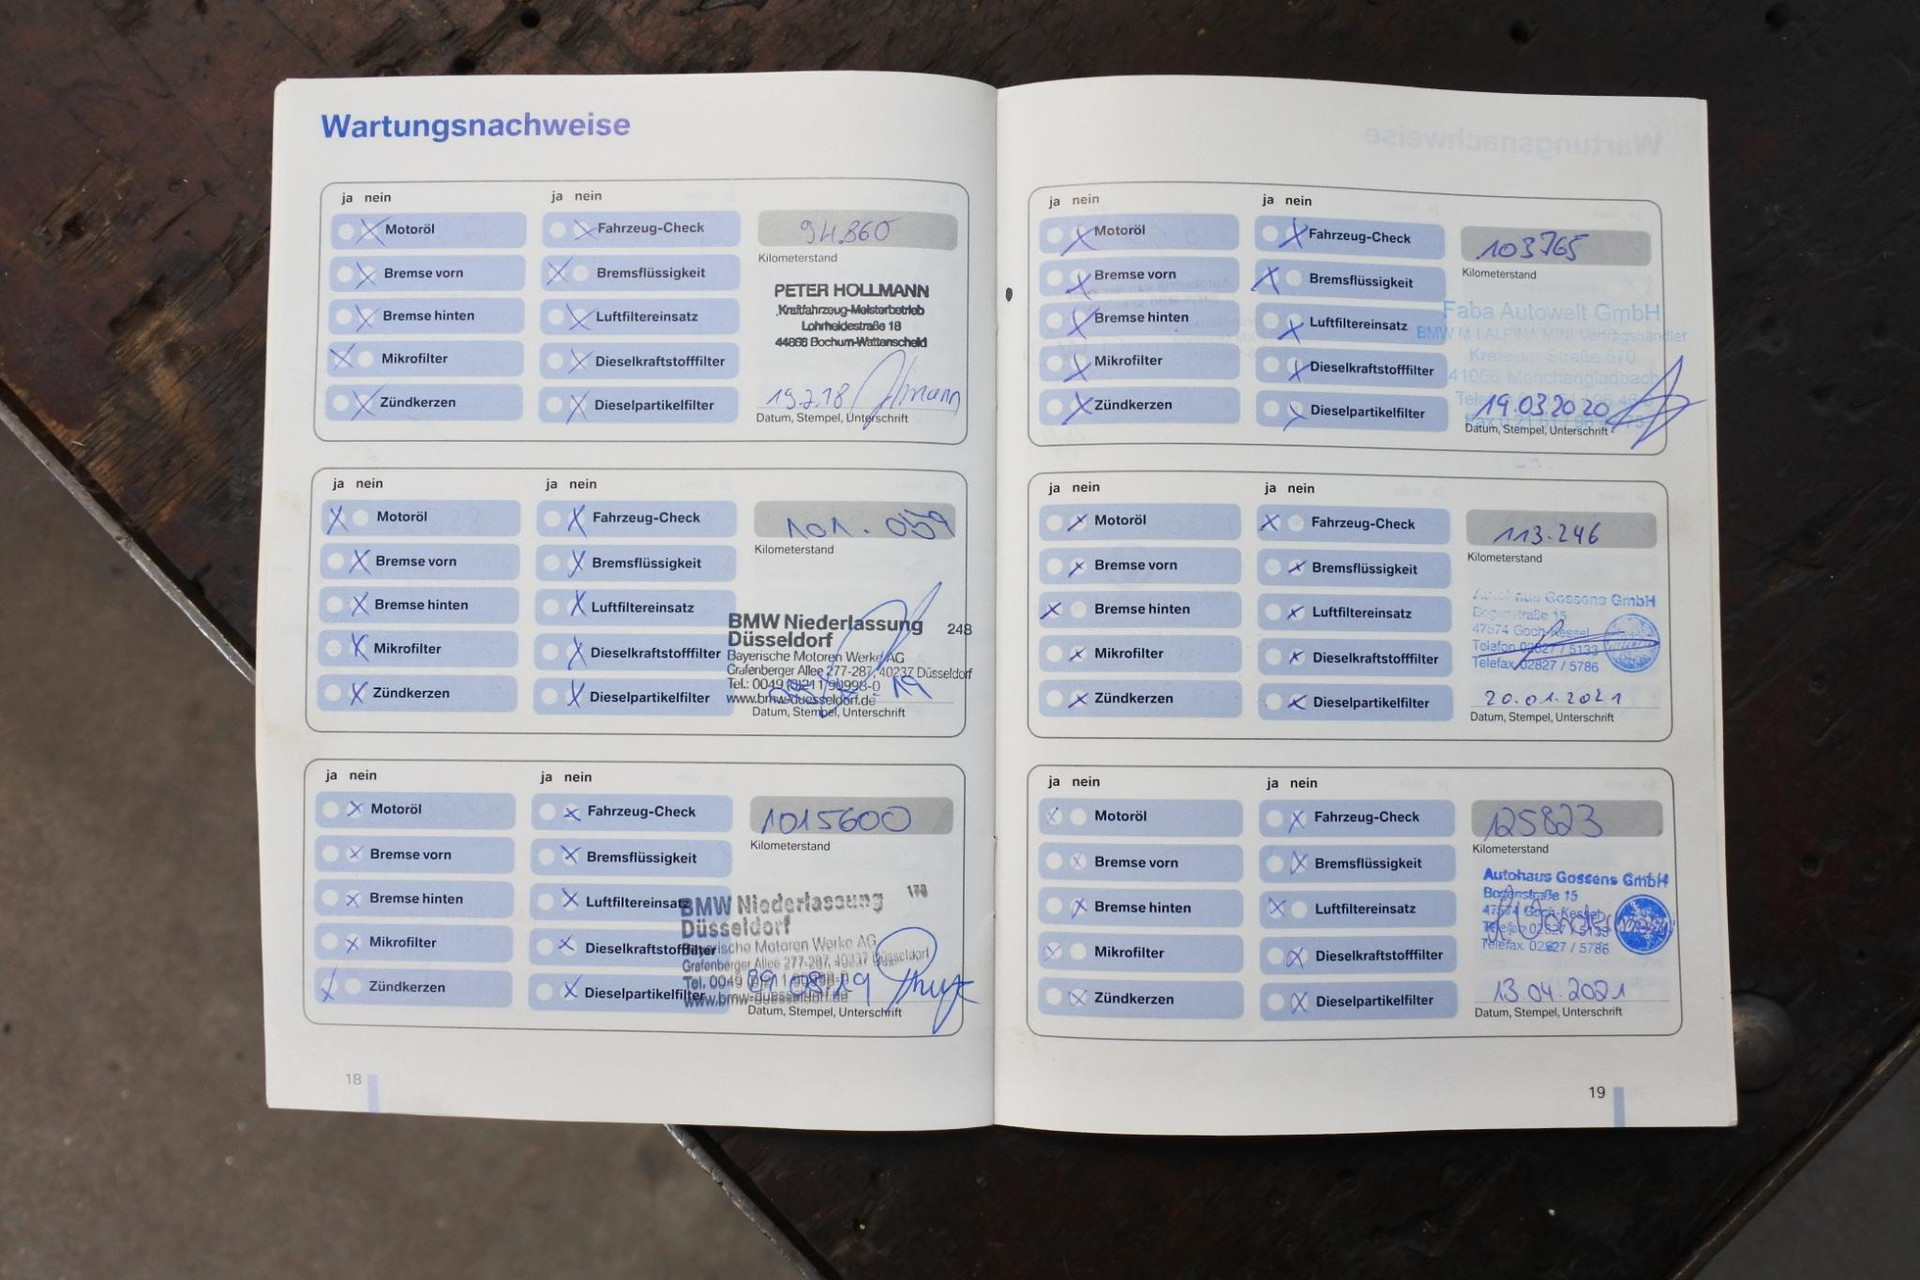 Wartungsnachweise
ja nein
ja nein
Motoröl
Fahrzeug-Check
94.860
Bremse vorn
Bremsflüssigkeit
Kilometerstand
Bremse hinten
Luftfiltereinsatz
PETER HOLLMANN
Kraftfahrzeug-Meisterbetrieb
Lohrheidestraße 18
44866 Bochum-Wattenscheid
Mikrofilter
Dieselkraftstofffilter
Zündkerzen
Dieselpartikelfilter
19.7.18
Datum, Stempel, Unterschrift
ja nein
ja nein
Motoröl
Fahrzeug-Check
101.059
Bremse vorn
Bremsflüssigkeit
Kilometerstand
Bremse hinten
Luftfiltereinsatz
BMW Niederlassung 248
Düsseldorf
Mikrofilter
Dieselkraftstofffilter
Bayerische Motoren Werke AG
Grafenberger Allee 277-287, 40237 Düsseldorf
Tel.: 0049 (0)211/90998-0
www.bmw-duesseldorf.de
Zündkerzen
Dieselpartikelfilter
Datum, Stempel, Unterschrift
ja nein
ja nein
Motoröl
Fahrzeug-Check
1015600
Bremse vorn
Bremsflüssigkeit
Kilometerstand
Bremse hinten
Luftfiltereinsatz
BMW Niederlassung
Düsseldorf
Mikrofilter
Dieselkraftstofffilter
Bayerische Motoren Werke AG
Grafenberger Allee 277-287, 40237 Düsseldorf
Zündkerzen
Dieselpartikelfilter
www.bmw-duesseldorf.de
Datum, Stempel, Unterschrift
18
ja nein
ja nein
Motoröl
Fahrzeug-Check
103765
Bremse vorn
Bremsflüssigkeit
Kilometerstand
Bremse hinten
Luftfiltereinsatz
Faba Autowelt GmbH
BMW M I ALPINA MINI Vertragshändler
Krefelder Straße 570
41066 Mönchengladbach
Mikrofilter
Dieselkraftstofffilter
Zündkerzen
Dieselpartikelfilter
19.03.2020
Datum, Stempel, Unterschrift
ja nein
ja nein
Motoröl
Fahrzeug-Check
113.246
Bremse vorn
Bremsflüssigkeit
Kilometerstand
Bremse hinten
Luftfiltereinsatz
Autohaus Gossens GmbH
Bogenstraße 15
47574 Goch-Kessel
Telefon 02827 / 5133
Telefax 02827 / 5786
Mikrofilter
Dieselkraftstofffilter
Zündkerzen
Dieselpartikelfilter
20.01.2021
Datum, Stempel, Unterschrift
ja nein
ja nein
Motoröl
Fahrzeug-Check
125823
Bremse vorn
Bremsflüssigkeit
Kilometerstand
Bremse hinten
Luftfiltereinsatz
Autohaus Gossens GmbH
Bogenstraße 15
47574 Goch-Kessel
Telefon 02827 / 5133
Telefax 02827 / 5786
Mikrofilter
Dieselkraftstofffilter
Zündkerzen
Dieselpartikelfilter
13.04.2021
Datum, Stempel, Unterschrift
19